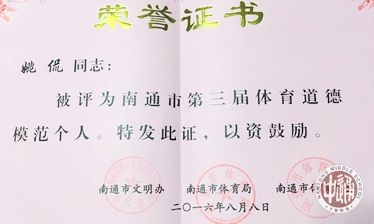 荣誉证书
姚侃同志：
被评为南通市第三届体育道德
模范个人。特发此证，以资鼓励。
南通市文明办 南通市体育局 南通市体
二〇一六年八月八日